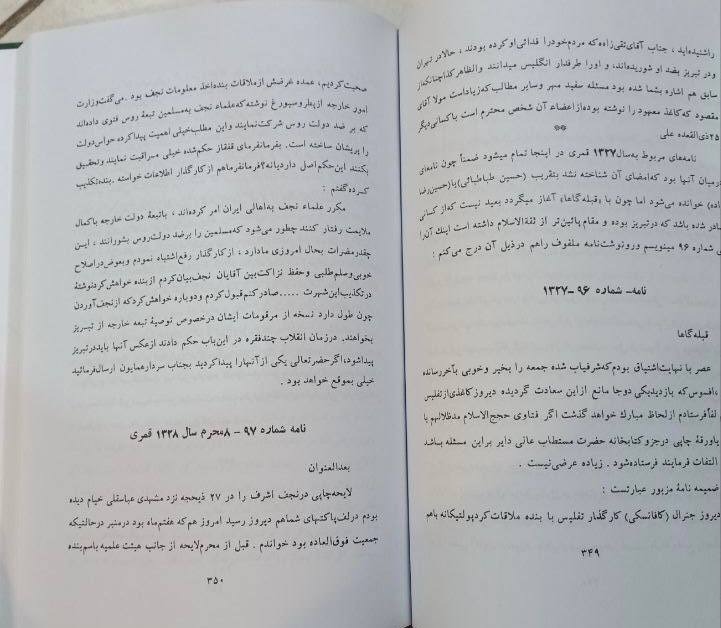 راشنیده‌اید ، جناب آقای‌تقی‌زاده‌که مردم‌خودرا فدائی‌اوکرده بودند ، حالادر تهران
ودر تبریز بضد او شوریده‌اند، و اورا طرفدار انگلیس میدانند والظاهرکذا‌چنانکه‌از
سابق هم اشاره بشما شده بود مسئله سفید مهر وسایر مطالب‌که زیاداست مولا آقای
مقصود که‌کاغذ معهود را نوشته بوده‌ازاعضاء آن شخص محترم است یاکسانی‌دیگر
۲۵ذی‌القعده علی
**
نامه‌های مربوط به‌سال ۱۳۲۷ قمری در اینجا تمام میشود ضمناً چون نامه‌ای
درمیان آنها بود که‌امضای آن شناخته نشد بتقریب (حسین طباطبائی)یا(حسین‌رضا
زاده) خوانده می‌شود اما چون با «قبله‌گاها» آغاز میگردد بعید نیست که‌از کسانی
صادر شده باشد که درتبریز بوده و مقام پائین‌تر از ثقة‌الاسلام داشته است اینك آن‌را
ی شماره ۹۶ مینویسم ورونوشت‌نامه ملفوف راهم درذیل آن درج می‌کنم :
نامه- شماره ۹۶ -۱۳۲۷
قبله‌گاها
عصر با نهایت‌اشتیاق بودم‌که‌شرفیاب شده جمعه را بخیر وخوبی بآخررسانده
،افسوس‌که بازدیدیکی دوجا مانع ازاین سعادت گردیده دیروزکاغذی‌ازتفلیس
لفاًفرستادم ازلحاظ مبارك خواهد گذشت اگر فتاوی حجج‌الاسلام مدظلالهم با
پاورقۀ چاپی درجزوکتابخانه حضرت مستطاب عالی دایر براین مسئله بباشد
التفات فرمایند فرستاده‌شود . زیاده عرضی‌نیست .
ضمیمه نامۀ مزبور عبارتست :
دیروز جنرال (کافانسکی) کارگذار تفلیس با بنده ملاقات‌کردپولتیکانه باهم
۳۴۹
صحبت‌کردیم، عمده غرضش ازملاقات بنده‌اخذ معلومات نجف بود .می‌گفت‌وزارت
امور خارجه ازپطر‌وسبورغ نوشته‌که‌علماء نجف به‌مسلمین تبعۀ روس فتوی داده‌اند
که بر ضد دولت روس شرکت‌نمایند واین مطلب‌خیلی اهمیت پیداکرده حواس‌دولت
را پریشان ساخته است. بفرمانفرمای قفقاز حکم‌شده خیلی مراقبت نمایند وتحقیق
بکنند این‌حکم‌اصل داردیانه؟فرمانفرماهم ازکارگذار اطلاعات خواسته .بنده‌تکلیب
کرده‌گفتم :
مکرر علماء نجف به‌اهالی ایران امر کرده‌اند ، باتبعۀ دولت خارجه باکمال
ملایمت رفتار کنند چطور می‌شود که‌مسلمین را برضد دولت‌روس بشورانند ، این
چقدرمضرات بحال امروزی مادارد ، ازکارگذار رفع‌اشتباه نمودم وبعوض‌دراصلاح
خوبی‌وسلم‌طلبی وحفظ نزاکت‌بین آقایان نجف‌بیان‌کردم ازبنده خواهش‌کردنوشتۀ
درتکذیب‌این‌شهرت ..... صادرکنم‌قبول‌کردم ودوباره خواهش‌کردکه ازنجف‌آوردن
چون طول دارد نسخه از مرقومات ایشان درخصوص توصیۀ تبعه خارجه از تبریز
بخواهند. درزمان انقلاب چندفقره در این‌باب حکم دادند ازعکس آنها بایددرتبریز
پیداشود،اگرحضرتعالی یکی ازآنهارا پیداکردید بجناب سردارهمایون ارسال‌فرمائید
خیلی بموقع خواهد بود .
نامه شماره ۹۷ - ۸محرم سال ۱۳۲۸ قمری
بعدالعنوان
لایحه‌چاپی درنجف اشرف را در ۲۷ ذیحجه نزد مشهدی عباسقلی خیام دیده
بودم درلف‌پاکتهای شماهم دیروز رسید امروز هم‌که هفتم‌ماه بود درمنبر درحالتیکه
جمعیت فوق‌العاده بود خواندم . قبل از محرم‌لایحه از جانب هیئت علمیه باسم‌بنده
۳۵۰